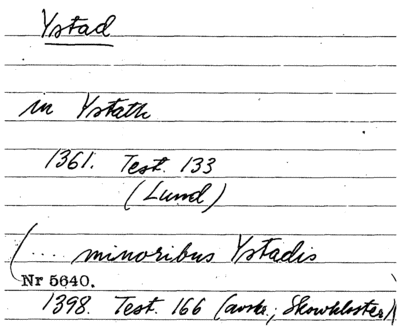 Ystad
in Ystath
1361. Test. 133
(Lund)
(.... minoribus Ystadis
Nr 5640.
1398. Test. 166 (avskr.; Skowkloster))